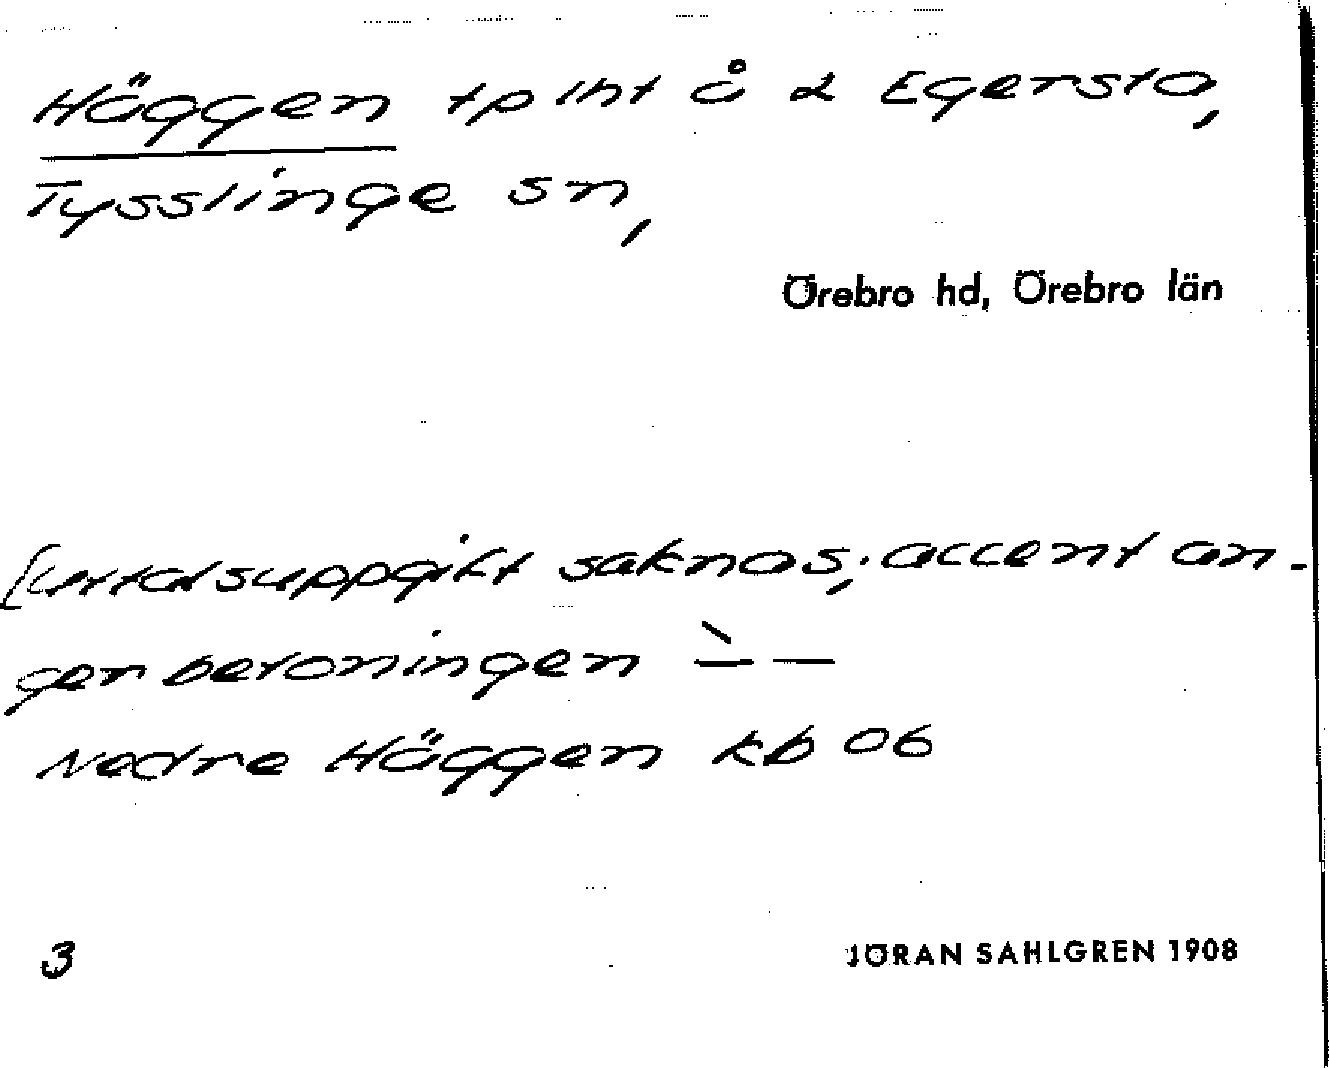 Häggen tp lht å α Egersta,
Tysslinge sn,
Örebro hd, Örebro län
[uttalsuppgift saknas; accent an-
ger betoningen
Nedre Häggen kb 06
3
JÖRAN SAHLGREN 1908